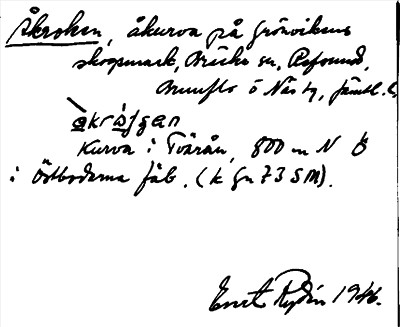 Åkroken, åkurva på Grönvikens
skogsmark, Bräcke sn, Refsund,
Brunflo o Näs tg, Jämtl. l.
åkrɷ̀jɡen
Kurva i Tvärån, 800 m N Ö
i Östbodarna fäb. (k Gn 73 SM).
Ernst Rydén 1946.